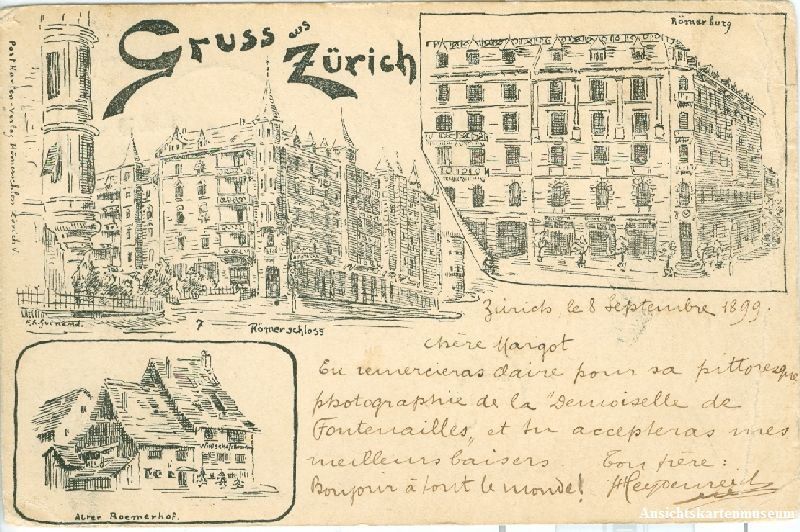 Gruss aus
Zürich
Römerburg
Postkarten-verlag Römerschloss Zürich V
7
Römerschloss
Zürich le 8 Septembre 1899.
Chère Margot
Tu remercieras claire pour sa pittoresque
photographie de la "Demoiselle de
Fontenailles", et tu accepteras mes
meilleurs baisers Ton frère:
Bonjour à tout le monde!
Alter Roemerhof.
Ansichtskartenmuseum